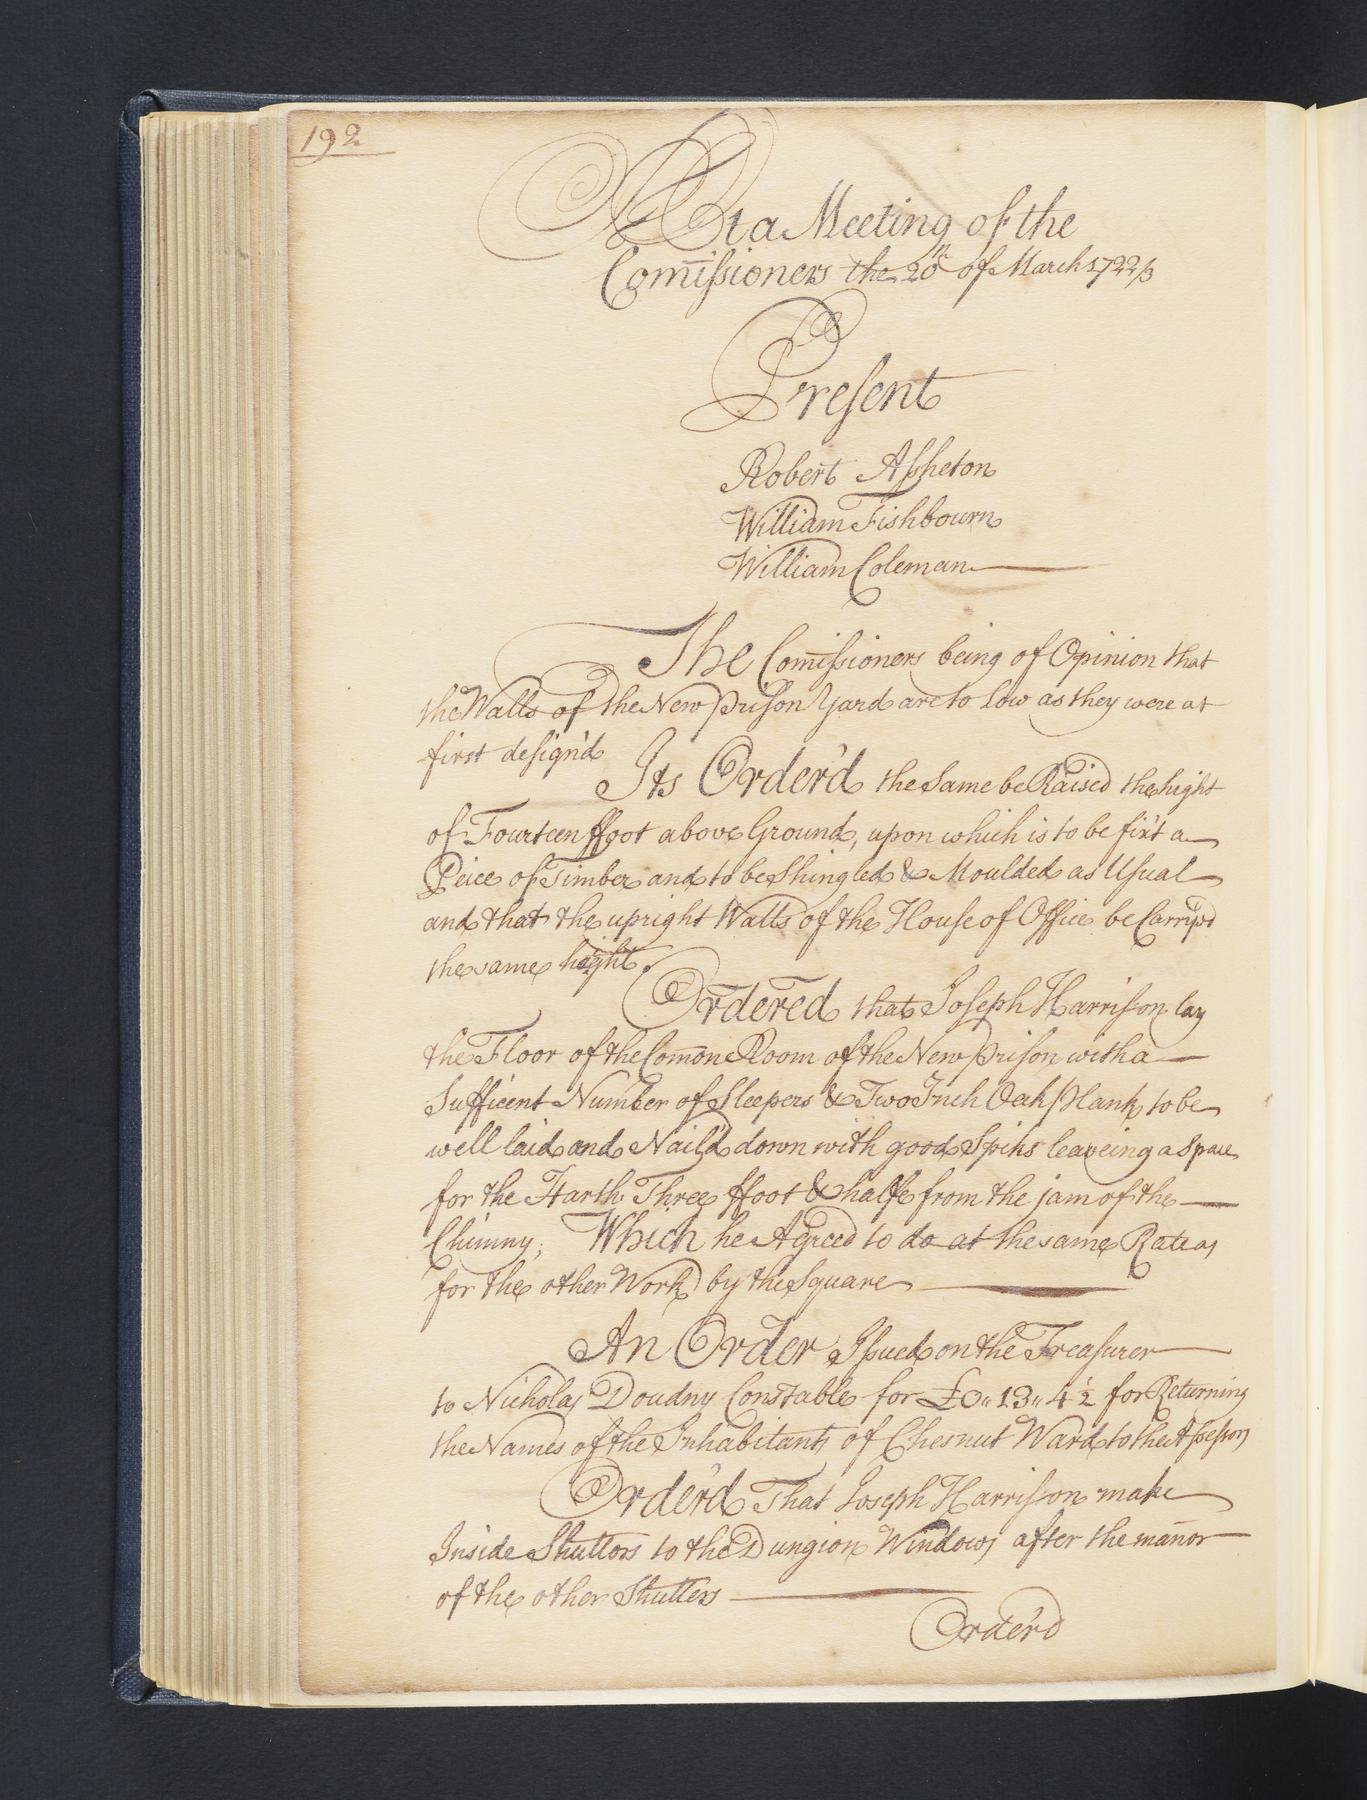 192
At a Meeting of the
Com̄issioners the 20th of March 1722/3
Present
Robert Assheton
William Fishbourn
William Coleman
The Com̄issioners being of Opinion that
the Walls of the New Prison Yard are to Low as they were at
first design'd Its Order'd the Same be Raised the hight
of Fourteen ffoot above Ground, upon which is to be fix't a
Peice of Timber and to be Shingled & Moulded as Usual
and that the upright Walls of the House of Office be Carryed
the same hight.
Ordered that Joseph Harrison lay
the Floor of the Com̄on Room of the New Prison with a
Sufficent Number of Sleepers & Two Inch Oak Plank to be
well laid and Nail'd down with good Spiks leaveing a Space
for the Harth Three ffoot & halfe from the jam of the
Chimny; Which he Agreed to do at the same Rate as
for the other Work by the Square
An Order Issued on the Treasurer
to Nicholas Doudny Constable for £0„13„4½ for Returning
the Names of the Inhabitants of Chesnut Ward to the Assessors
Order'd That Joseph Harrison make
Inside Shutters to the Dungion Windows after the man̄or
of the other Shutters
Order'd